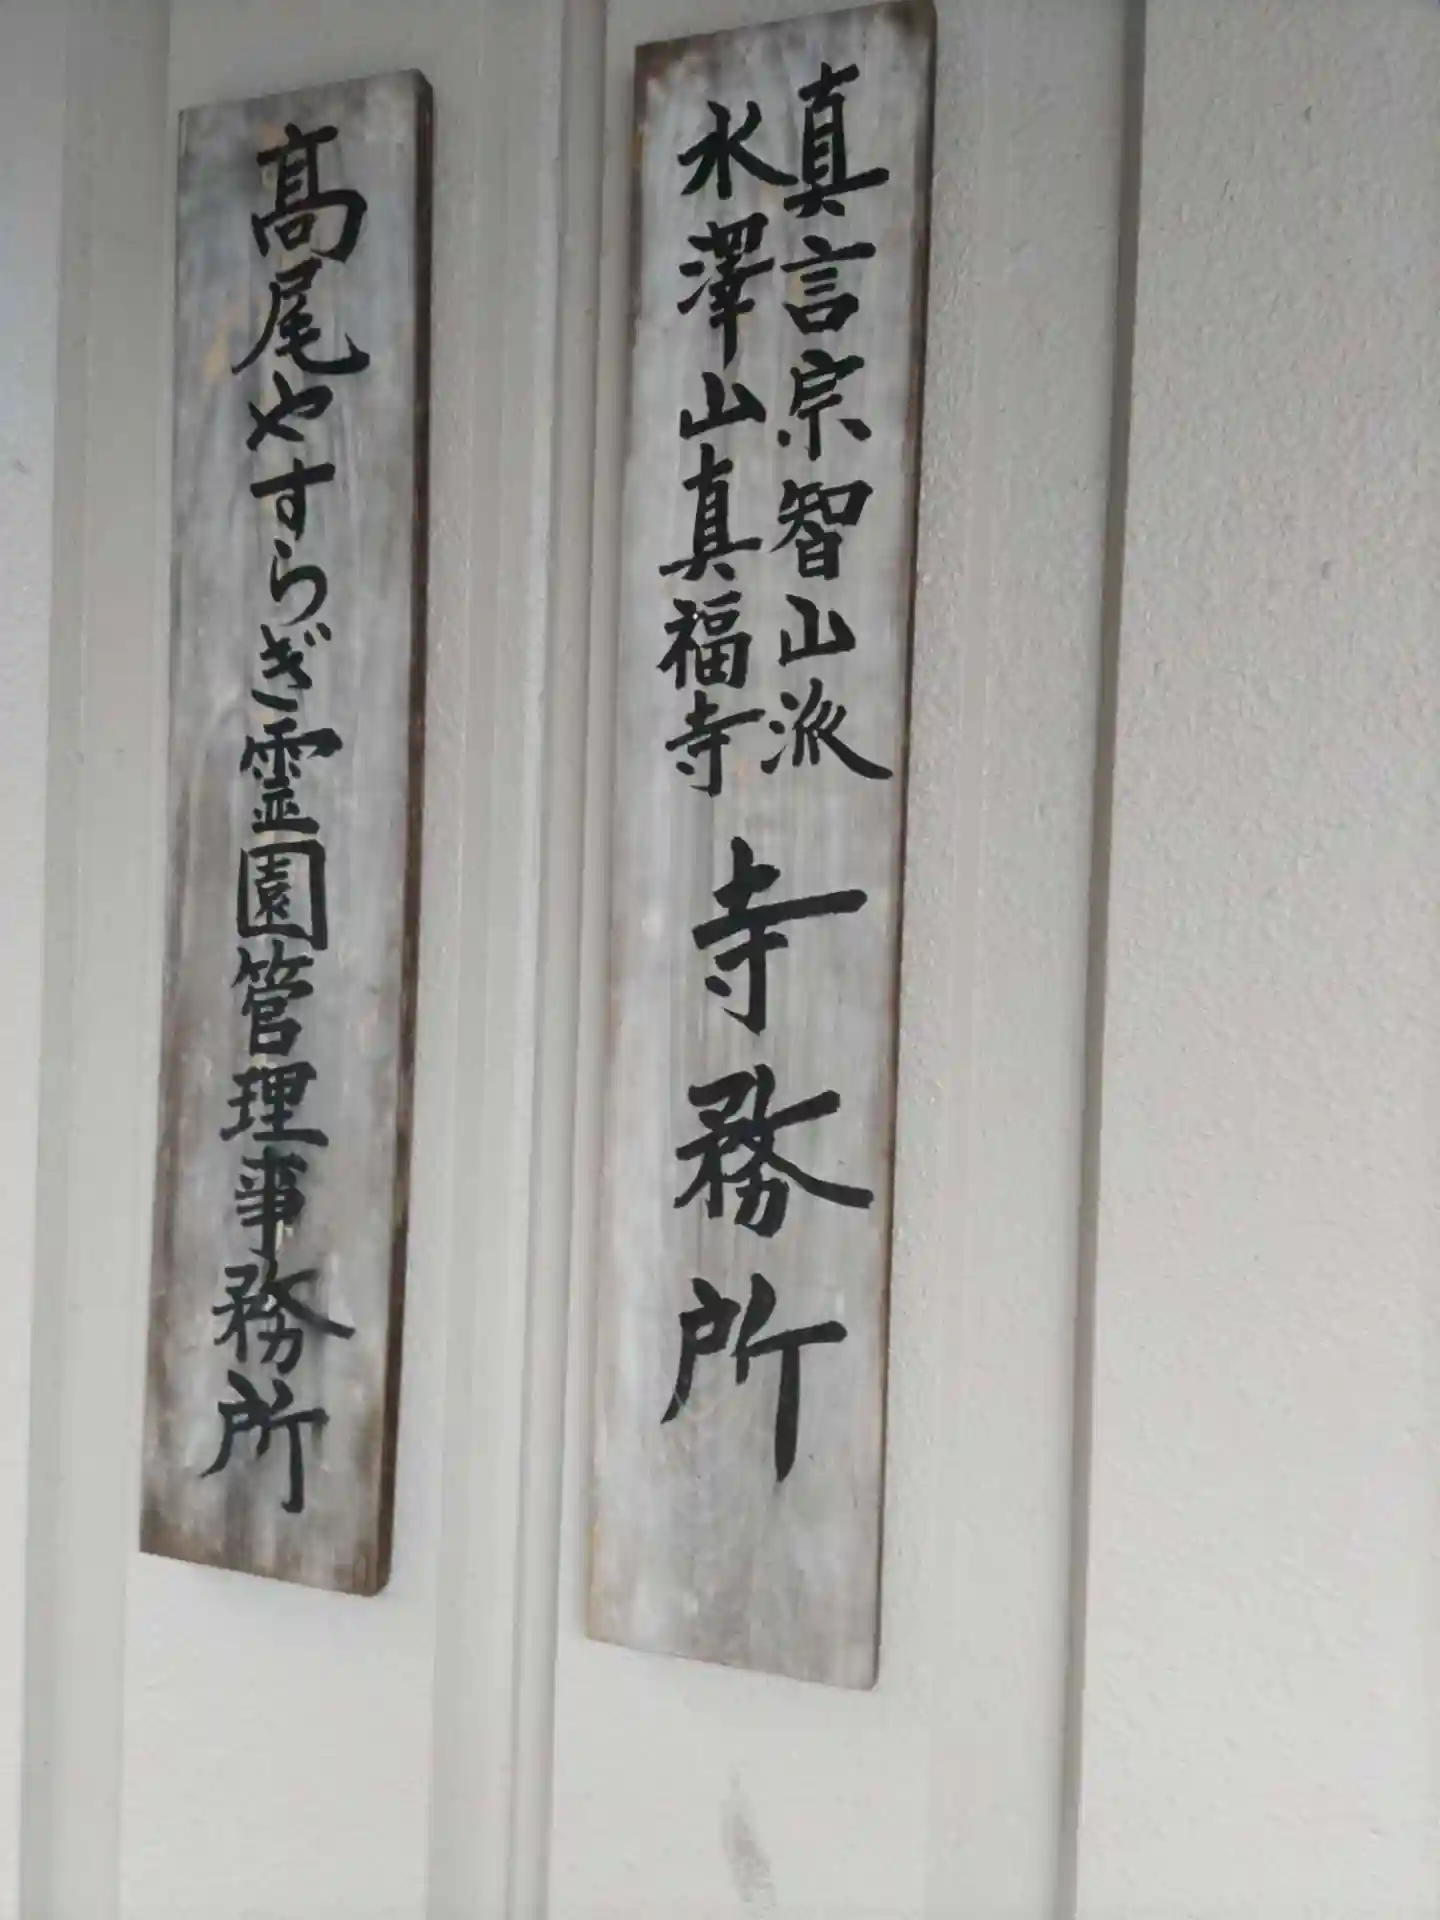 真言宗智山派
水澤山真福寺
寺務所
髙尾やすらぎ霊園管理事務所